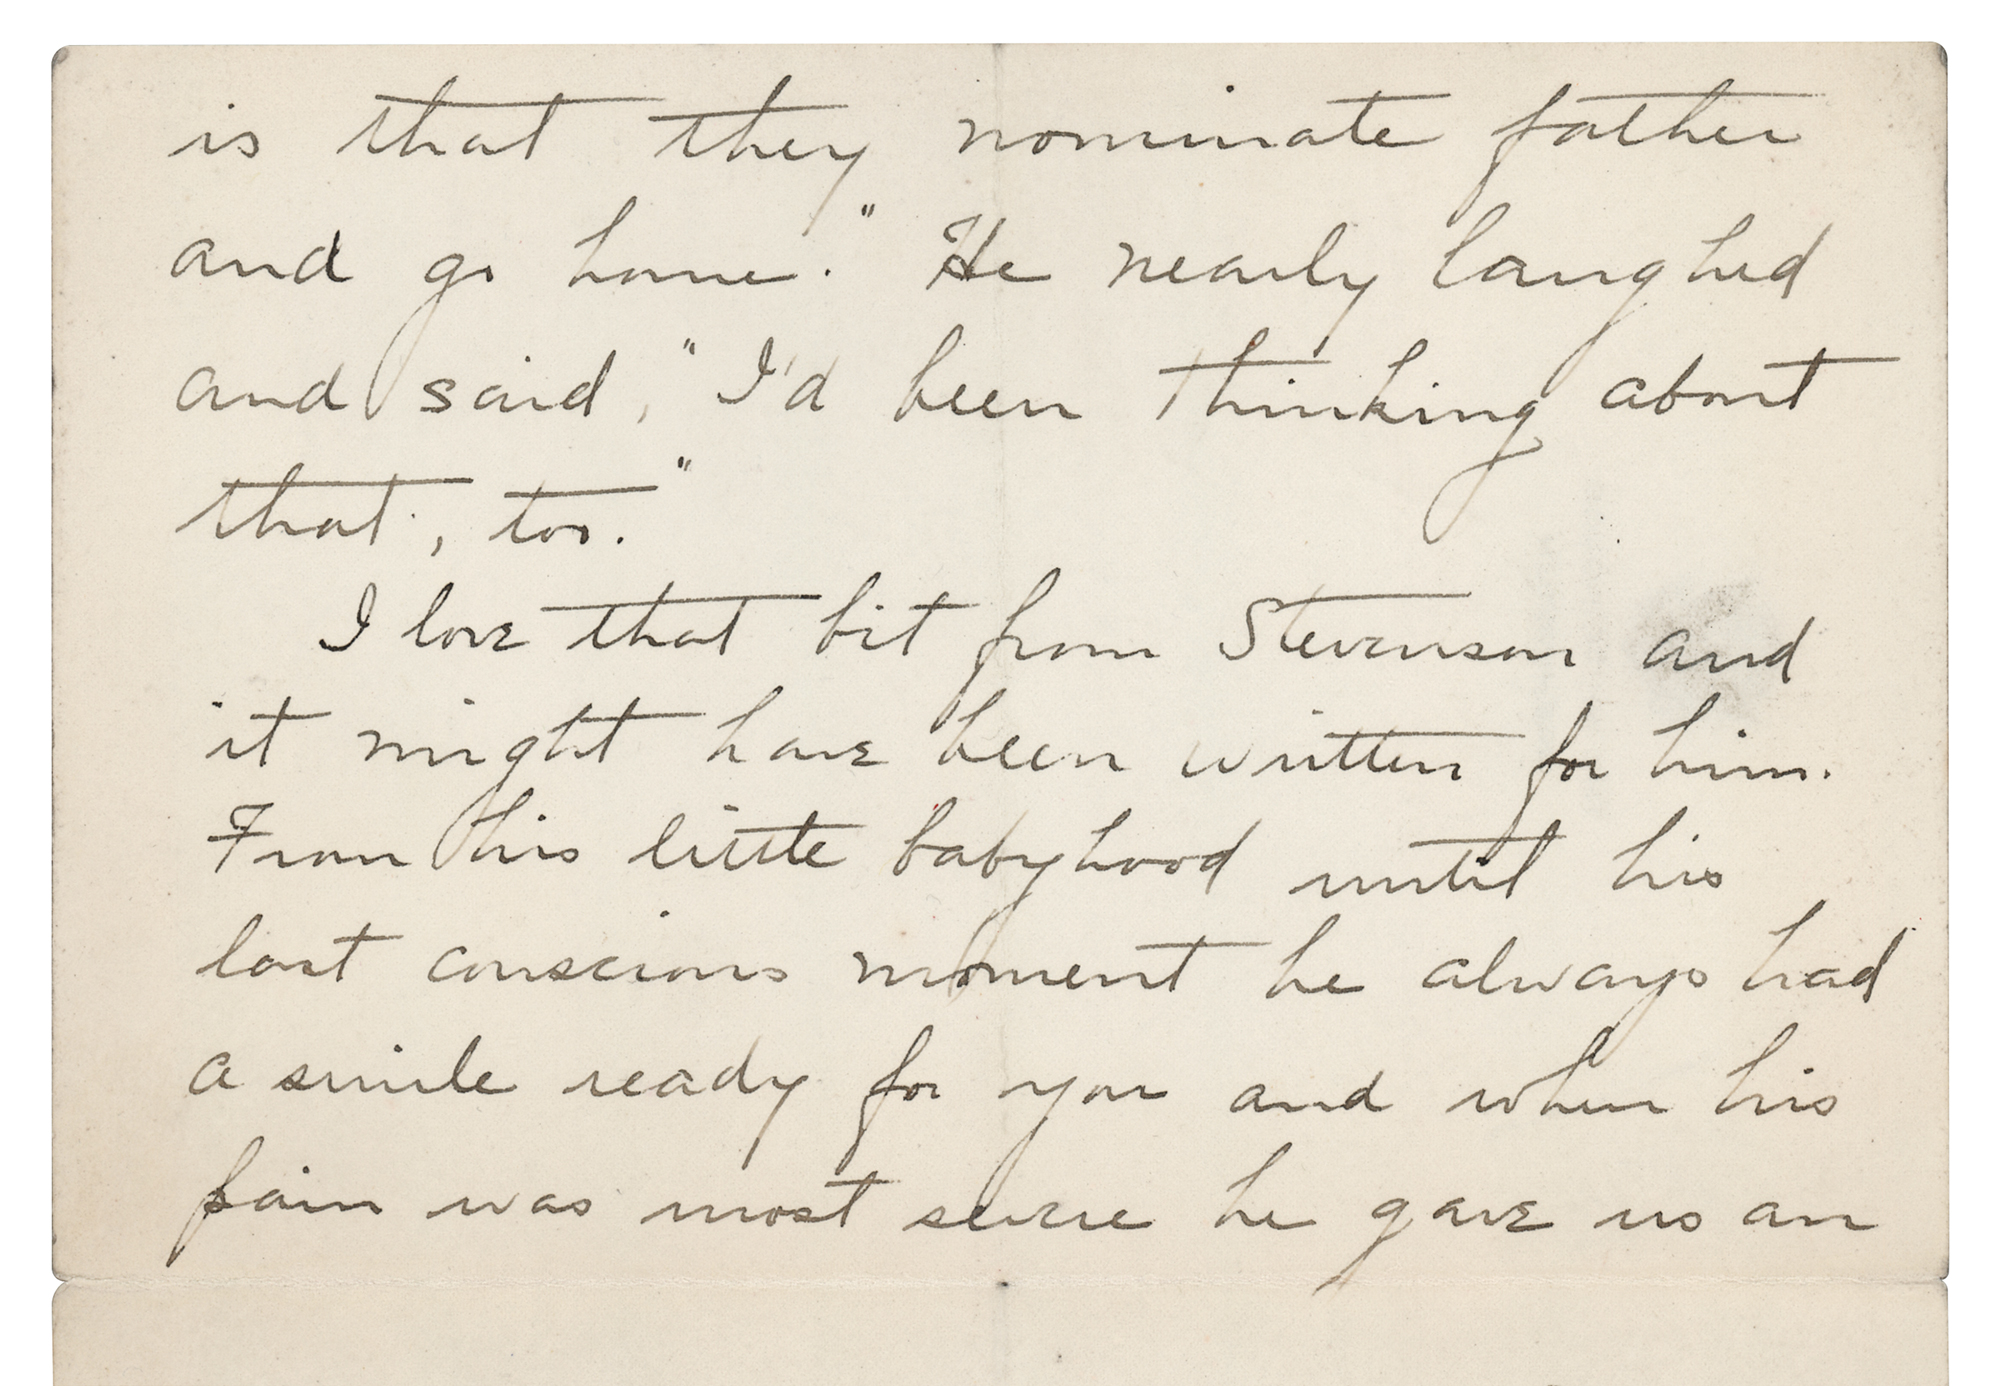 is that they nominate father
and go home." He nearly laughed
and said, "I'd been thinking about
that, too."
I love that bit from Stevenson and
it might have been written for him.
From his little babyhood until his
last conscious moment he always had
a smile ready for you and when his
pain was most severe he gave us an